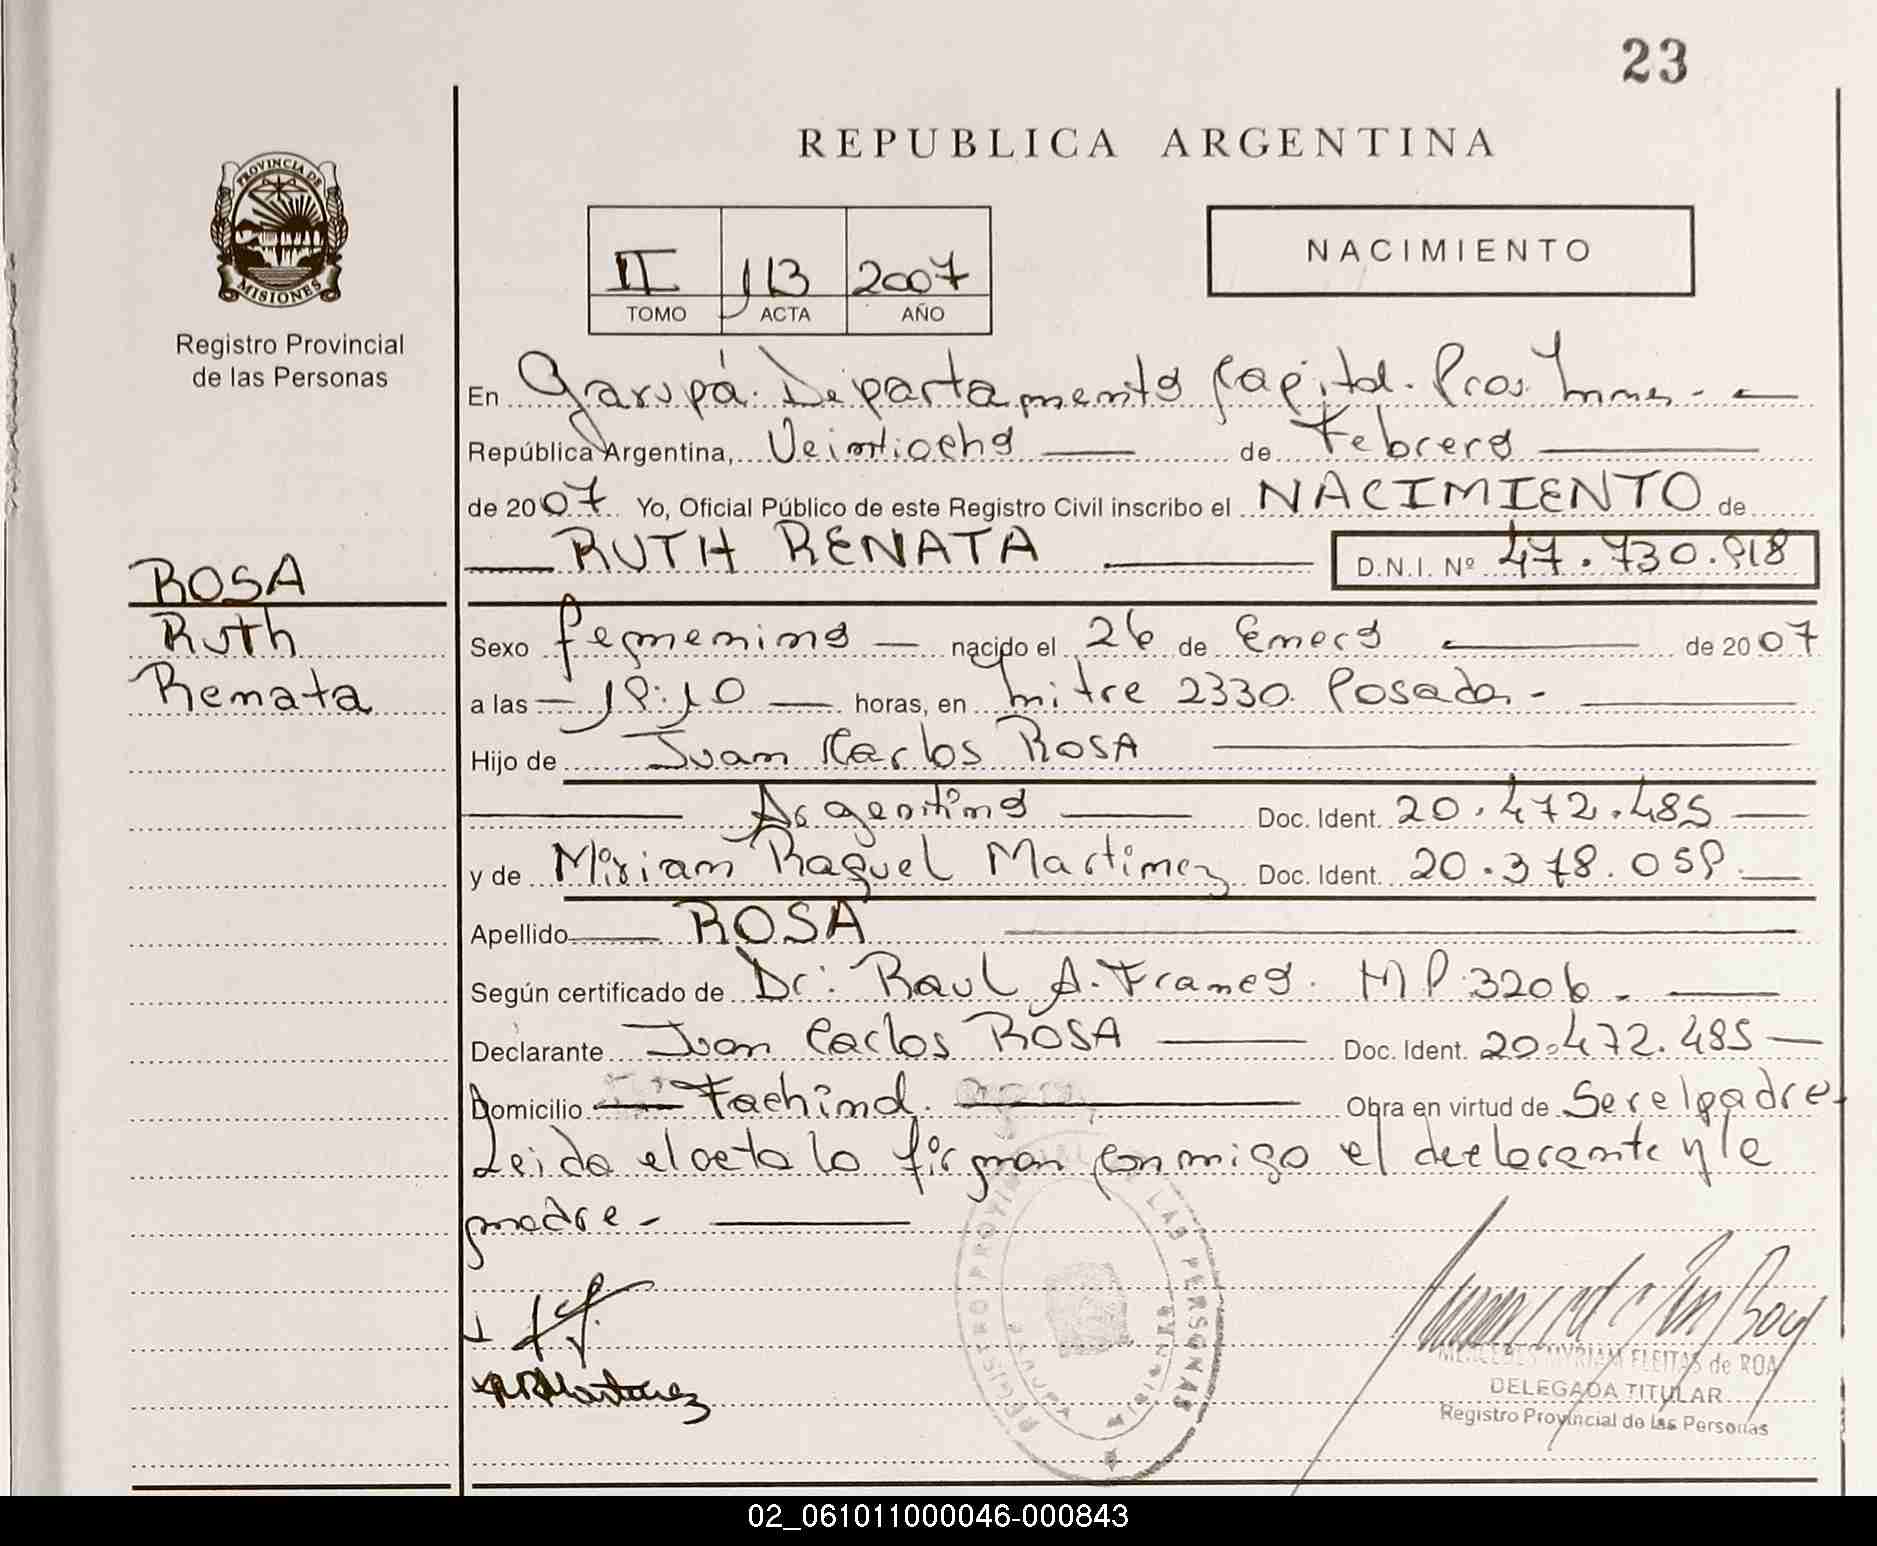 23
REPUBLICA ARGENTINA
PROVINCIA DE
MISIONES
Registro Provincial
de las Personas
II 113 2007
TOMO ACTA AÑO
NACIMIENTO
En Garupá. Departamento Capital. Prov. Mnes. -
República Argentina, Veintiocho de Febrero
de 2007 Yo, Oficial Público de este Registro Civil inscribo el NACIMIENTO de
RUTH RENATA D.N.I. Nº 47.730.918
ROSA
Ruth
Renata
Sexo femenino nacido el 26 de Enero de 2007
a las 18:10 horas, en mitre 2330. Posadas -
Hijo de Juan Carlos ROSA
Argentino Doc. Ident. 20.472.485
y de Miriam Raquel Martinez Doc. Ident. 20.378.058.
Apellido ROSA
Según certificado de Dr: Raul A. Franco. MP. 3206.
Declarante Juan Carlos ROSA Doc. Ident. 20.472.485
Domicilio Fachinal. Obra en virtud de Ser el padre.
Leida el acta la firman conmigo el declarante y la
madre -
REGISTRO PROVINCIAL DE LAS PERSONAS
GARUPA MISIONES
MRMartinez
MERCEDES MYRIAM FLEITAS de ROA
DELEGADA TITULAR
Registro Provincial de las Personas
02_061011000046-000843